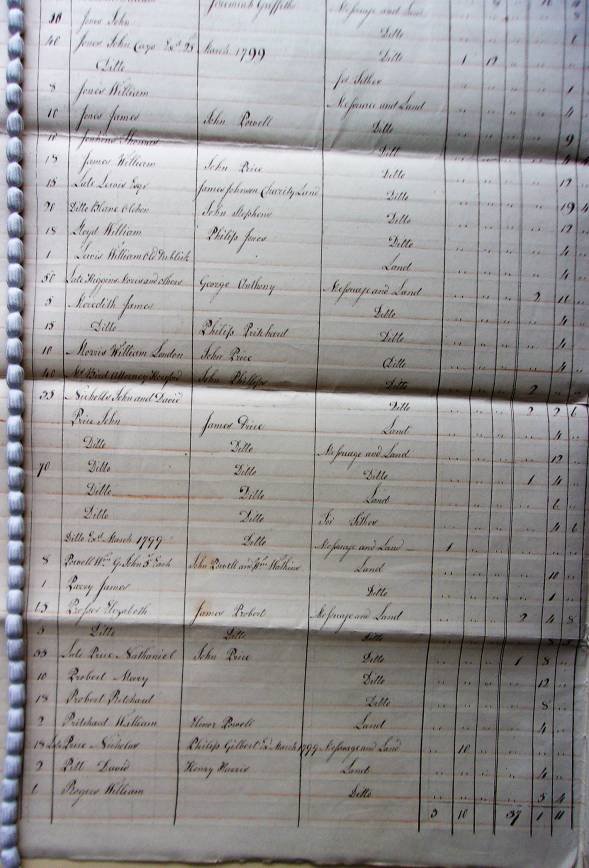 Jeremiah Griffiths Messuage and Land
10 Jones John Ditto
40 Jones John March 1799 Ditto 1
Ditto for Tithes
8 Jones William Messuage and Land 4
10 Jones James John Powell Ditto 9
Jenkins Thomas Ditto 4
18 James William John Price Ditto 12
18 Late Lewis Esqr James Johnson Charity Land Ditto 19 4
20 Ditto John Stephens Ditto 12
18 Lloyd William Philip Jones Ditto 4
1 Lewis William Old Land 4
50 Late Higgins and others George Anthony Messuage and Land 2 11
5 Meredith James Ditto 4
15 Ditto Philip Pritchard Ditto 4
10 Morris William London John Price Ditto 4
40 Mr Bird Attorney John Phillips Ditto 2
33 Nicholls John and David Ditto 2 2 6
Price John James Price Land 4
Ditto Ditto Messuage and Land 12
70 Ditto Ditto Ditto 1 4
Ditto Ditto Land 6
Ditto Ditto For Tithes 4 6
Ditto March 1799 Ditto Messuage and Land 1
8 Powell Wm John Powell and Wm Watkins Land 10
1 Parry James Ditto 1
13 Prosser Elizabeth James Robert Messuage and Land 2 4 8
3 Ditto Ditto Ditto
33 Late Price Nathaniel John Price Ditto 1 8
10 Probert Mary Ditto 12
18 Robert Pritchard Ditto 8
2 Pritchard William Elenor Powell Land 4
18 Late Price Nicholas Philip Gilbert March 1799 Messuage and Land 10
2 Pitt David Henry Harris Land 4
Rogers William Ditto 5 4
3 10 37 1 11